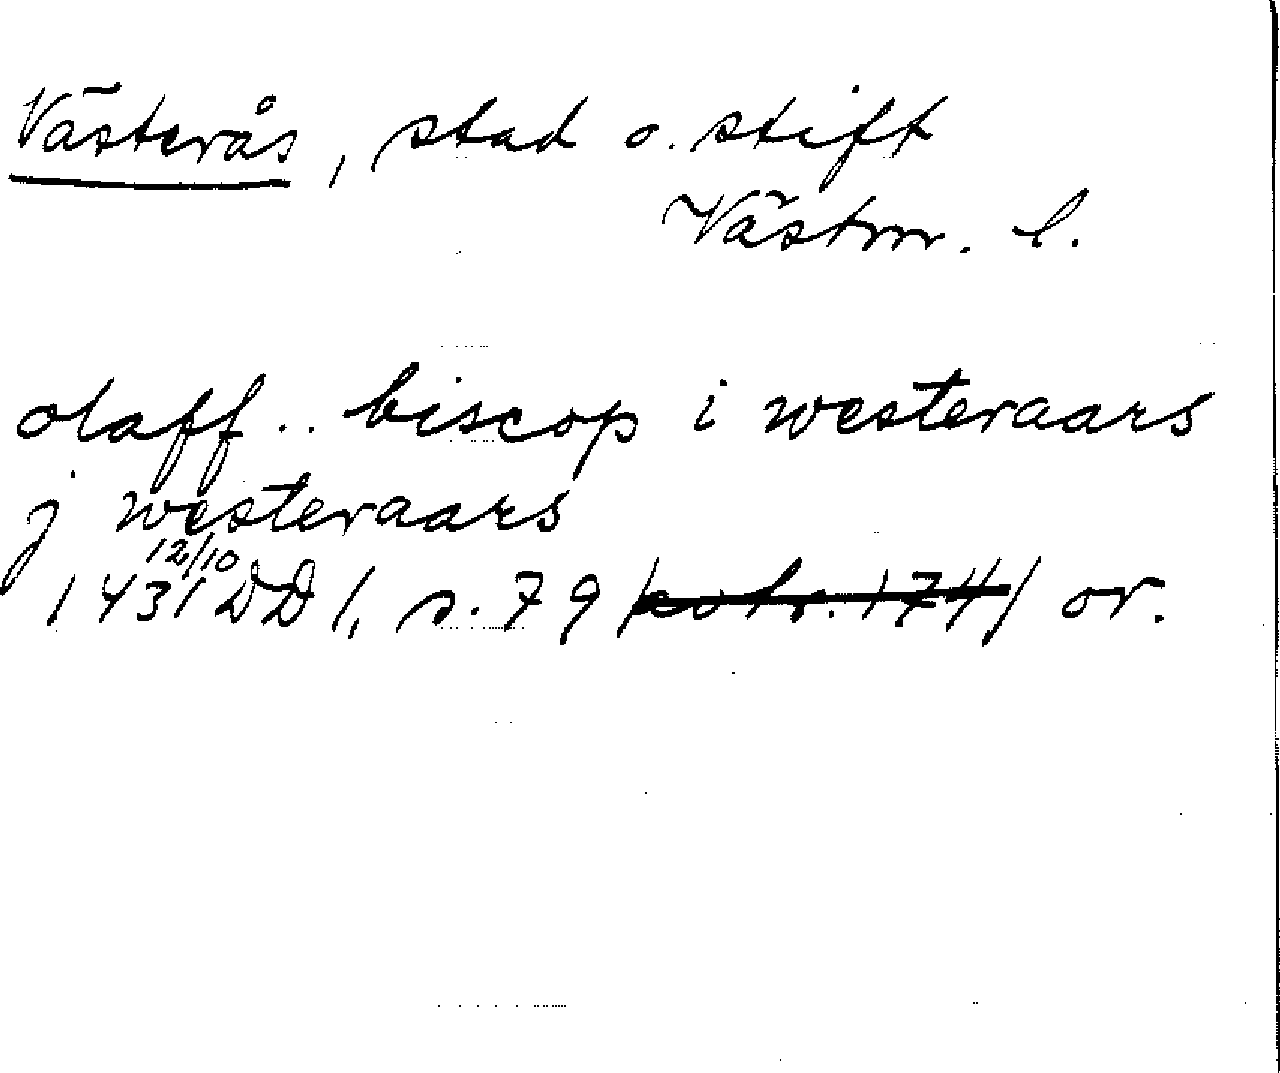 Västerås, stad o. stift
Västm. l.
olaff .. biscop i westeraars
j westeraars
12/10
1431 DD 1, s. 79 / 174/ or.